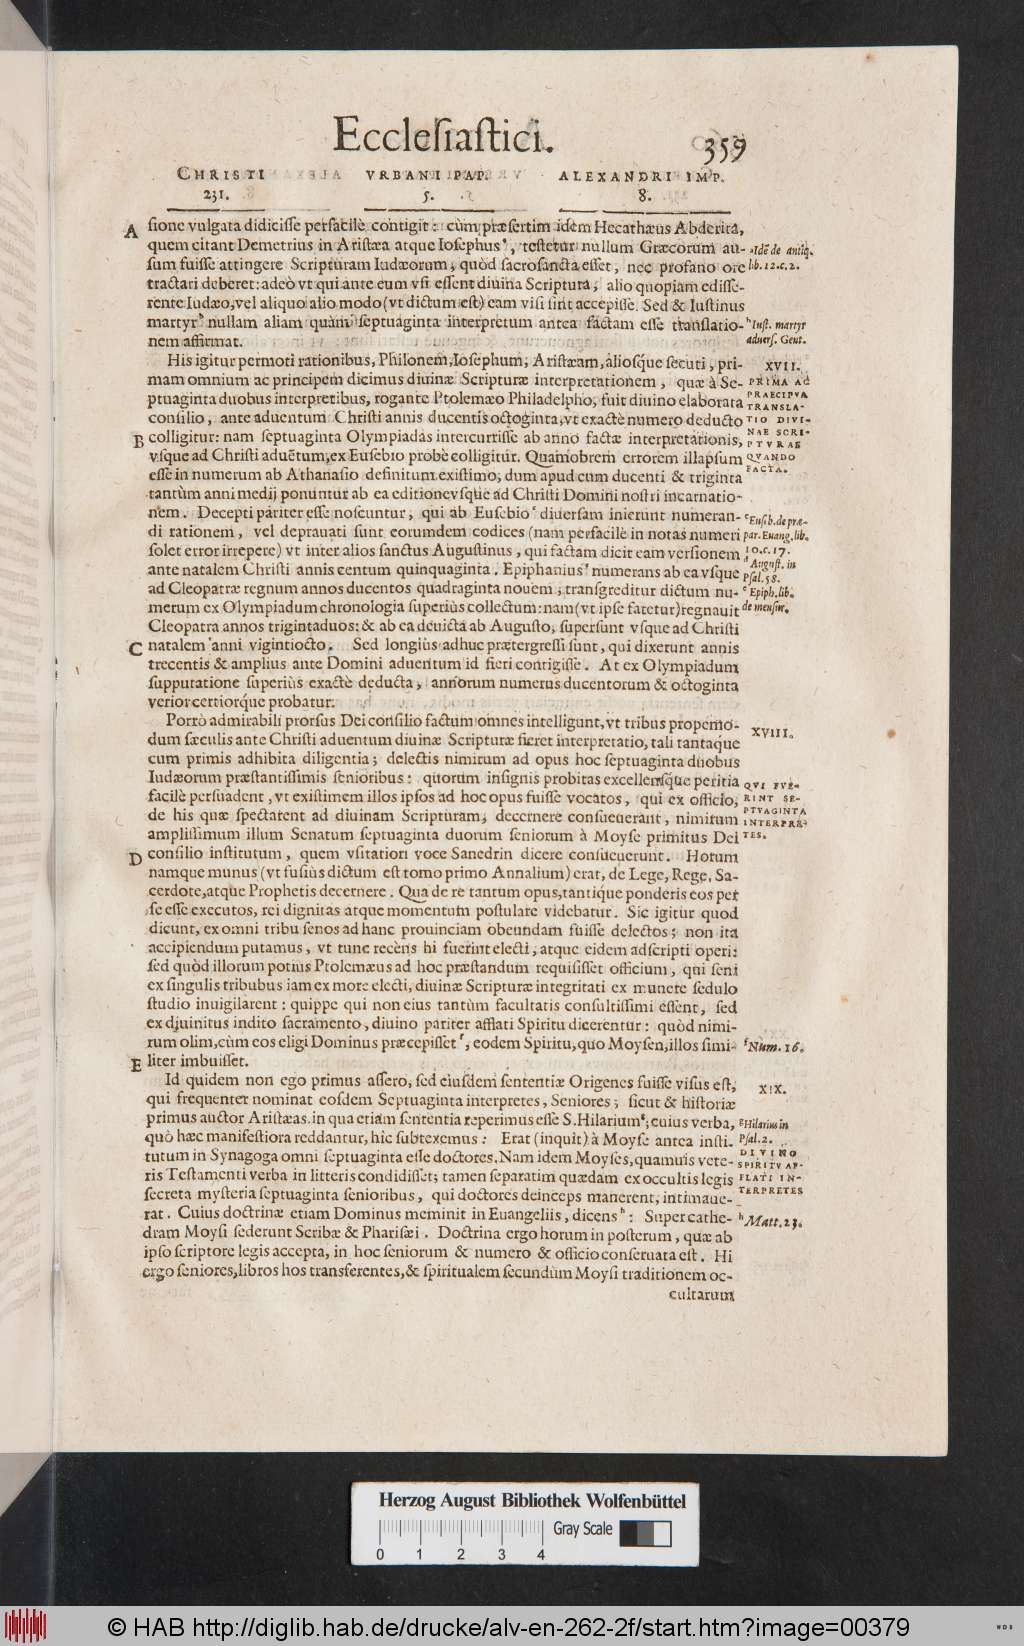 Ecclesiastici. 359
CHRISTI VRBANI PAP. ALEXANDRI IMP.
231. 5. 8.
A sione vulgata didicisse perfacilè contigit: cùm præsertim idem Hecathæus Abderita,
quem citant Demetrius in Aristæa atque Iosephus, testetur nullum Græcorum au-
sum fuisse attingere Scripturam Iudæorum, quòd sacrosancta esset, nec profano ore
tractari deberet: adeò vt qui ante eum vsi essent diuina Scriptura, alio quopiam edisse-
rente Iudæo, vel aliquo alio modo (vt dictum est) eam visi sint accepisse. Sed & Iustinus
martyr h nullam aliam quàm septuaginta interpretum antea factam esse translatio-
nem affirmat.
Idē de antiq.
lib. 12. c. 2.
h Iust. martyr
aduers. Gent.
His igitur permoti rationibus, Philonem, Iosephum, Aristæam, aliosq́ue secuti, pri-
mam omnium ac principem dicimus diuinæ Scripturæ interpretationem, quæ à Se-
ptuaginta duobus interpretibus, rogante Ptolemæo Philadelpho, fuit diuino elaborata
consilio, ante aduentum Christi annis ducentis octoginta, vt exactè numero deducto
B colligitur: nam septuaginta Olympiadas intercurrisse ab anno factæ interpretationis,
vsque ad Christi aduētum, ex Eusebio probè colligitur. Quamobrem errorem illapsum
esse in numerum ab Athanasio definitum existimo; dum apud eum ducenti & triginta
tantùm anni medij ponuntur ab ea editione vsque ad Christi Domini nostri incarnatio-
nem. Decepti pariter esse noscuntur, qui ab Eusebio c diuersam inierunt numeran-
di rationem, vel deprauati sunt eorumdem codices (nam perfacilè in notas numeri
solet error irrepere) vt inter alios sanctus Augustinus, qui factam dicit eam versionem
ante natalem Christi annis centum quinquaginta. Epiphanius numerans ab ea vsque
ad Cleopatræ regnum annos ducentos quadraginta nouem, transgreditur dictum nu-
merum ex Olympiadum chronologia superiùs collectum: nam (vt ipse fatetur) regnauit
Cleopatra annos triginta duos: & ab ea deuicta ab Augusto, supersunt vsque ad Christi
C natalem anni vigintiocto. Sed longiùs adhuc prætergressi sunt, qui dixerunt annis
trecentis & amplius ante Domini aduentum id fieri contigisse. At ex Olympiadum
supputatione superiùs exactè deducta, annorum numerus ducentorum & octoginta
verior certiorq́ue probatur.
XVII.
PRIMA AC
PRAECIPVA
TRANSLA-
TIO DIVI-
NAE SCRI-
PTVRAE
QVANDO
FACTA.
c Euseb. de præ-
par. Euang. lib.
10. c. 17.
d August. in
Psal. 58.
e Epiph. lib.
de mensur.
Porrò admirabili prorsus Dei consilio factum omnes intelligunt, vt tribus propemo-
dum sæculis ante Christi aduentum diuinæ Scripturæ fieret interpretatio, tali tantaque
cum primis adhibita diligentia; delectis nimirum ad opus hoc septuaginta duobus
Iudæorum præstantissimis senioribus: quorum insignis probitas excellensq́ue peritia
facilè persuadent, vt existimem illos ipsos ad hoc opus fuisse vocatos, qui ex officio,
de his quæ spectarent ad diuinam Scripturam, decernere consueuerant, nimirum
amplissimum illum Senatum septuaginta duorum seniorum à Moyse primitus Dei
D consilio institutum, quem vsitatiori voce Sanedrin dicere consueuerunt. Horum
namque munus (vt fusiùs dictum est tomo primo Annalium) erat, de Lege, Rege, Sa-
cerdote, atque Prophetis decernere. Qua de re tantum opus, tantique ponderis eos per
se esse executos, rei dignitas atque momentum postulare videbatur. Sic igitur quod
dicunt, ex omni tribu senos ad hanc prouinciam obeundam fuisse delectos; non ita
accipiendum putamus, vt tunc recèns hi fuerint electi, atque eidem adscripti operi:
sed quòd illorum potius Ptolemæus ad hoc præstandum requisisset officium, qui seni
ex singulis tribubus iam ex more electi, diuinæ Scripturæ integritati ex munere sedulo
studio inuigilarent: quippe qui non eius tantùm facultatis consultissimi essent, sed
ex diuinitus indito sacramento, diuino pariter afflati Spiritu dicerentur: quòd nimi-
rum olim, cùm eos eligi Dominus præcepisset f, eodem Spiritu, quo Moysen, illos simi-
E liter imbuisset.
XVIII.
QVI FVE-
RINT SE-
PTVAGINTA
INTERPRE-
TES.
f Num. 16.
Id quidem non ego primus assero, sed eiusdem sententiæ Origenes fuisse visus est,
qui frequenter nominat eosdem Septuaginta interpretes, Seniores; sicut & historiæ
primus auctor Aristæas. in qua etiam sententia reperimus esse S. Hilarium g; cuius verba,
quò hæc manifestiora reddantur, hîc subtexemus: Erat (inquit) à Moyse antea insti-
tutum in Synagoga omni septuaginta esse doctores. Nam idem Moyses, quamuis vete-
ris Testamenti verba in litteris condidisset; tamen separatim quædam ex occultis legis
secreta mysteria septuaginta senioribus, qui doctores deinceps manerent, intimaue-
rat. Cuius doctrinæ etiam Dominus meminit in Euangeliis, dicens h: Super cathe-
dram Moysi sederunt Scribæ & Pharisæi. Doctrina ergo horum in posterum, quæ ab
ipso scriptore legis accepta, in hoc seniorum & numero & officio conseruata est. Hi
ergo seniores, libros hos transferentes, & spiritualem secundùm Moysi traditionem oc-
cultarum
XIX.
g Hilarius in
Psal. 2.
DIVINO
SPIRITV AF-
FLATI IN-
TERPRETES
h Matt. 23.
Herzog August Bibliothek Wolfenbüttel
Gray Scale
0 1 2 3 4
© HAB http://diglib.hab.de/drucke/alv-en-262-2f/start.htm?image=00379